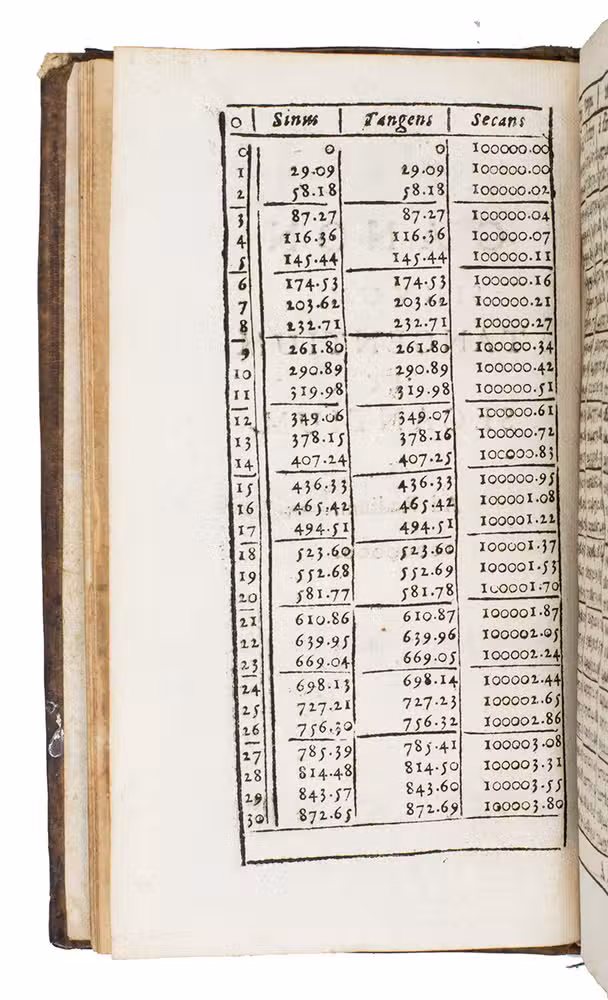 0 Sinus Tangens Secans
0 0 0 100000.00
1 29.09 29.09 100000.00
2 58.18 58.18 100000.02
3 87.27 87.27 100000.04
4 116.36 116.36 100000.07
5 145.44 145.44 100000.11
6 174.53 174.53 100000.16
7 203.62 203.62 100000.21
8 232.71 232.71 100000.27
9 261.80 261.80 100000.34
10 290.89 290.89 100000.42
11 319.98 319.98 100000.51
12 349.06 349.07 100000.61
13 378.15 378.16 100000.72
14 407.24 407.25 100000.83
15 436.33 436.33 100000.95
16 465.42 465.42 100001.08
17 494.51 494.51 100001.22
18 523.60 523.60 100001.37
19 552.68 552.69 100001.53
20 581.77 581.78 100001.70
21 610.86 610.87 100001.87
22 639.95 639.96 100002.05
23 669.04 669.05 100002.24
24 698.13 698.14 100002.44
25 727.21 727.23 100002.65
26 756.30 756.32 100002.86
27 785.39 785.41 100003.08
28 814.48 814.50 100003.31
29 843.57 843.60 100003.55
30 872.65 872.69 100003.80